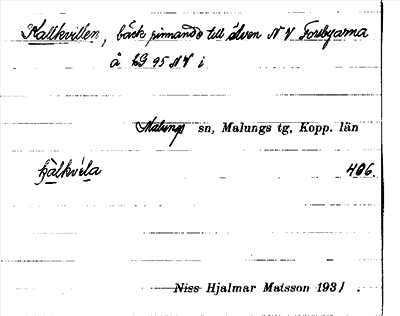 Kallkvillen, bäck rinnande till älven N V Forsbyarna
å LG 95 NV i
Malungs sn, Malungs tg, Kopp. län
406.
Niss Hjalmar Matsson 1931.